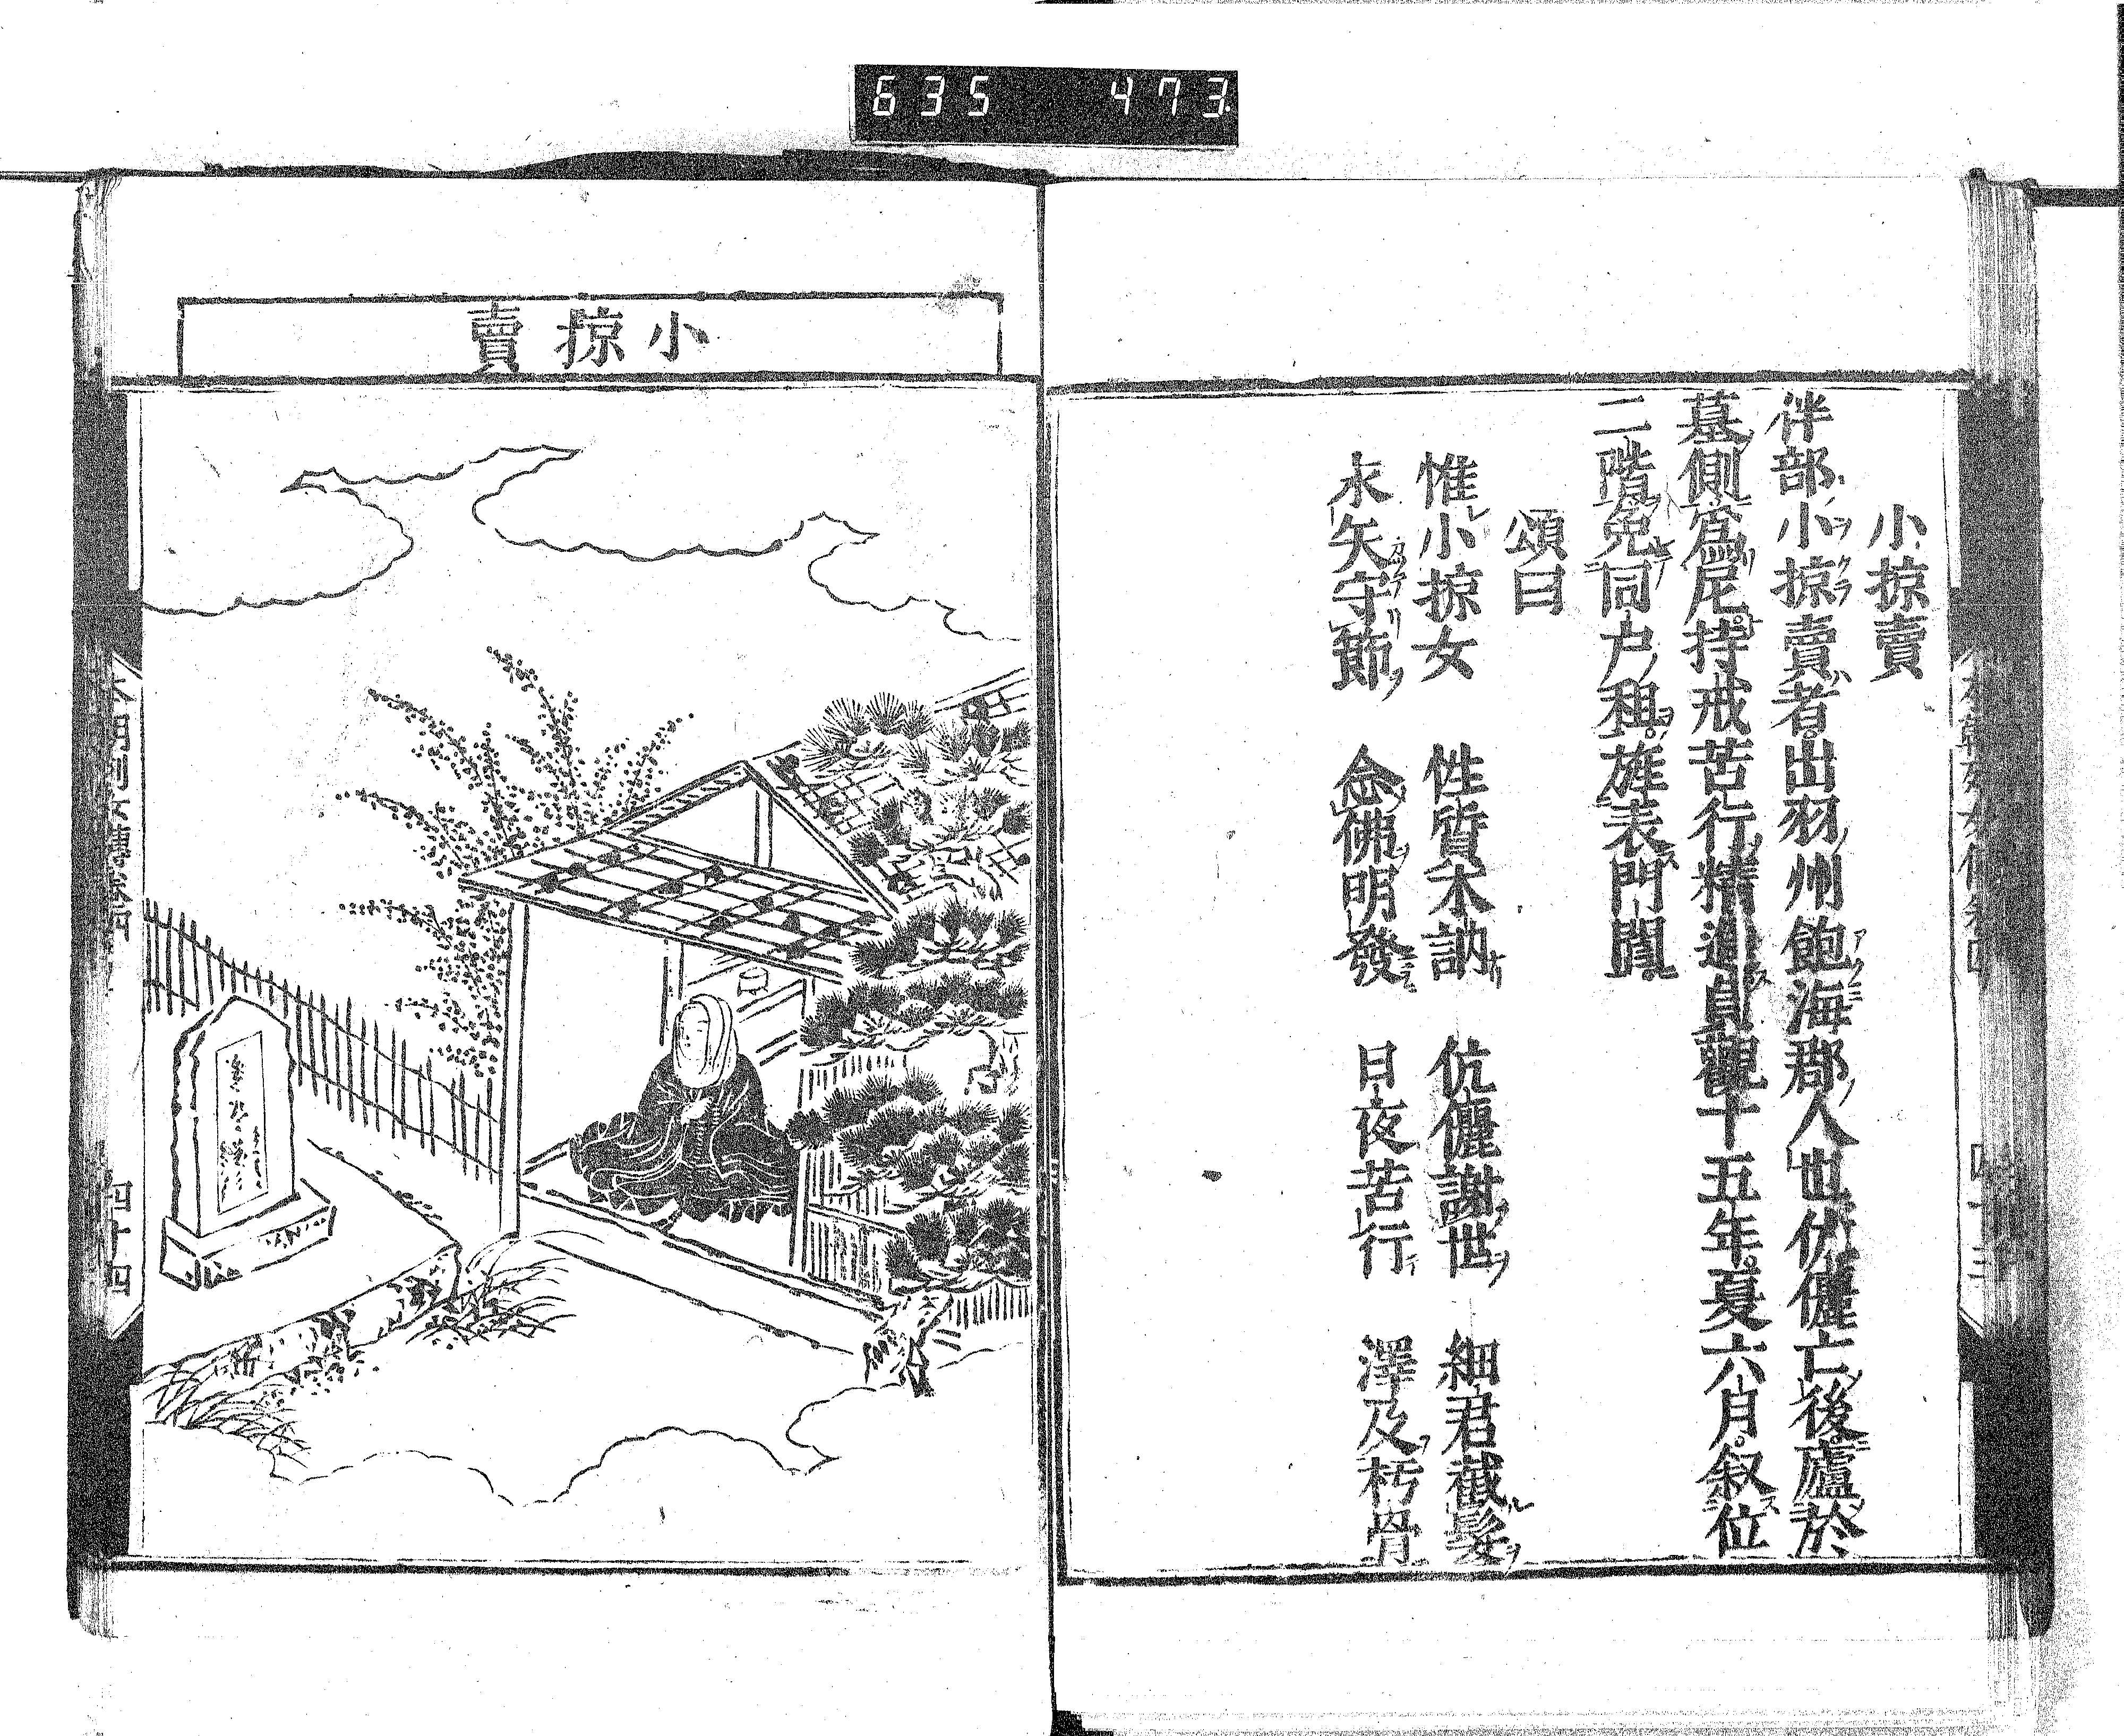 635 473
小掠賣
伴部小掠賣者出羽州飽海郡人也伉儷亡後廬於
墓側爲尼持戒苦行精進貞觀十五年夏六月叙位
二階免同戸租旌表門閭
頌曰
惟小掠女 性質木訥 伉儷謝世 細君截髮
永矢守節 念佛明發 日夜苦行 澤及朽骨
小掠賣
四十四